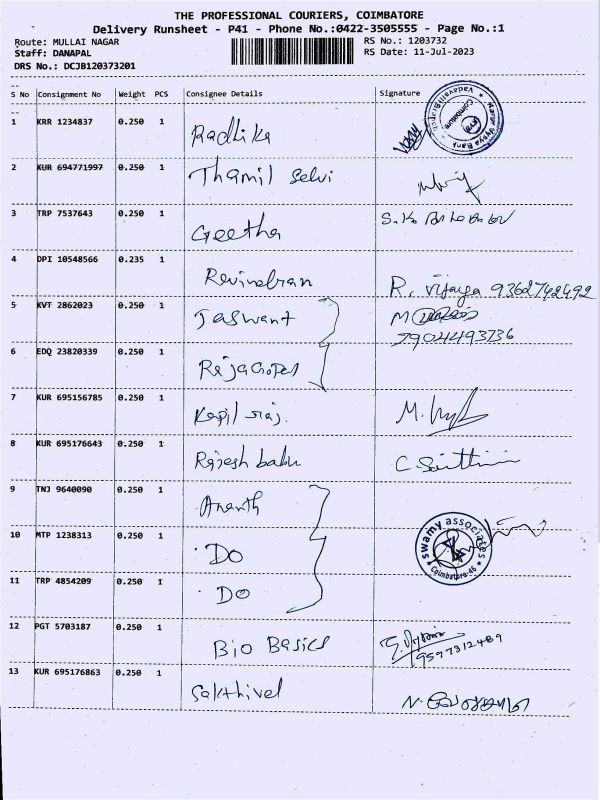 THE PROFESSIONAL COURIERS, COIMBATORE
Delivery Runsheet - P41 - Phone No.:0422-3505555 - Page No.:1
Route: MULLAI NAGAR RS No.: 1203732
Staff: DANAPAL RS Date: 11-Jul-2023
DRS No.: DCJB120373201
S No Consignment No Weight PCS Consignee Details Signature
1 KRR 1234837 0.250 1 Radhika
Karur Vysya Bank Vadavalli Br. Coimbatore
2 KUR 694771997 0.250 1 Thamil Selvi
3 TRP 7537643 0.250 1 Geetha
4 DPI 10548566 0.235 1 Ravindran R. Vijaya 9362742492
5 KVT 2862023 0.250 1 Jaswant M
7904493736
6 EDQ 23820339 0.250 1 RajaGopal
7 KUR 695156785 0.250 1 Kapil raj.
8 KUR 695176643 0.250 1 Rajesh babu
9 TNJ 9640090 0.250 1 Ananth
swamy associates Coimbatore-46
10 MTP 1238313 0.250 1 DO
11 TRP 4854209 0.250 1 DO
12 PGT 5703187 0.250 1 Bio Basics
9597312489
13 KUR 695176863 0.250 1 Sakthivel